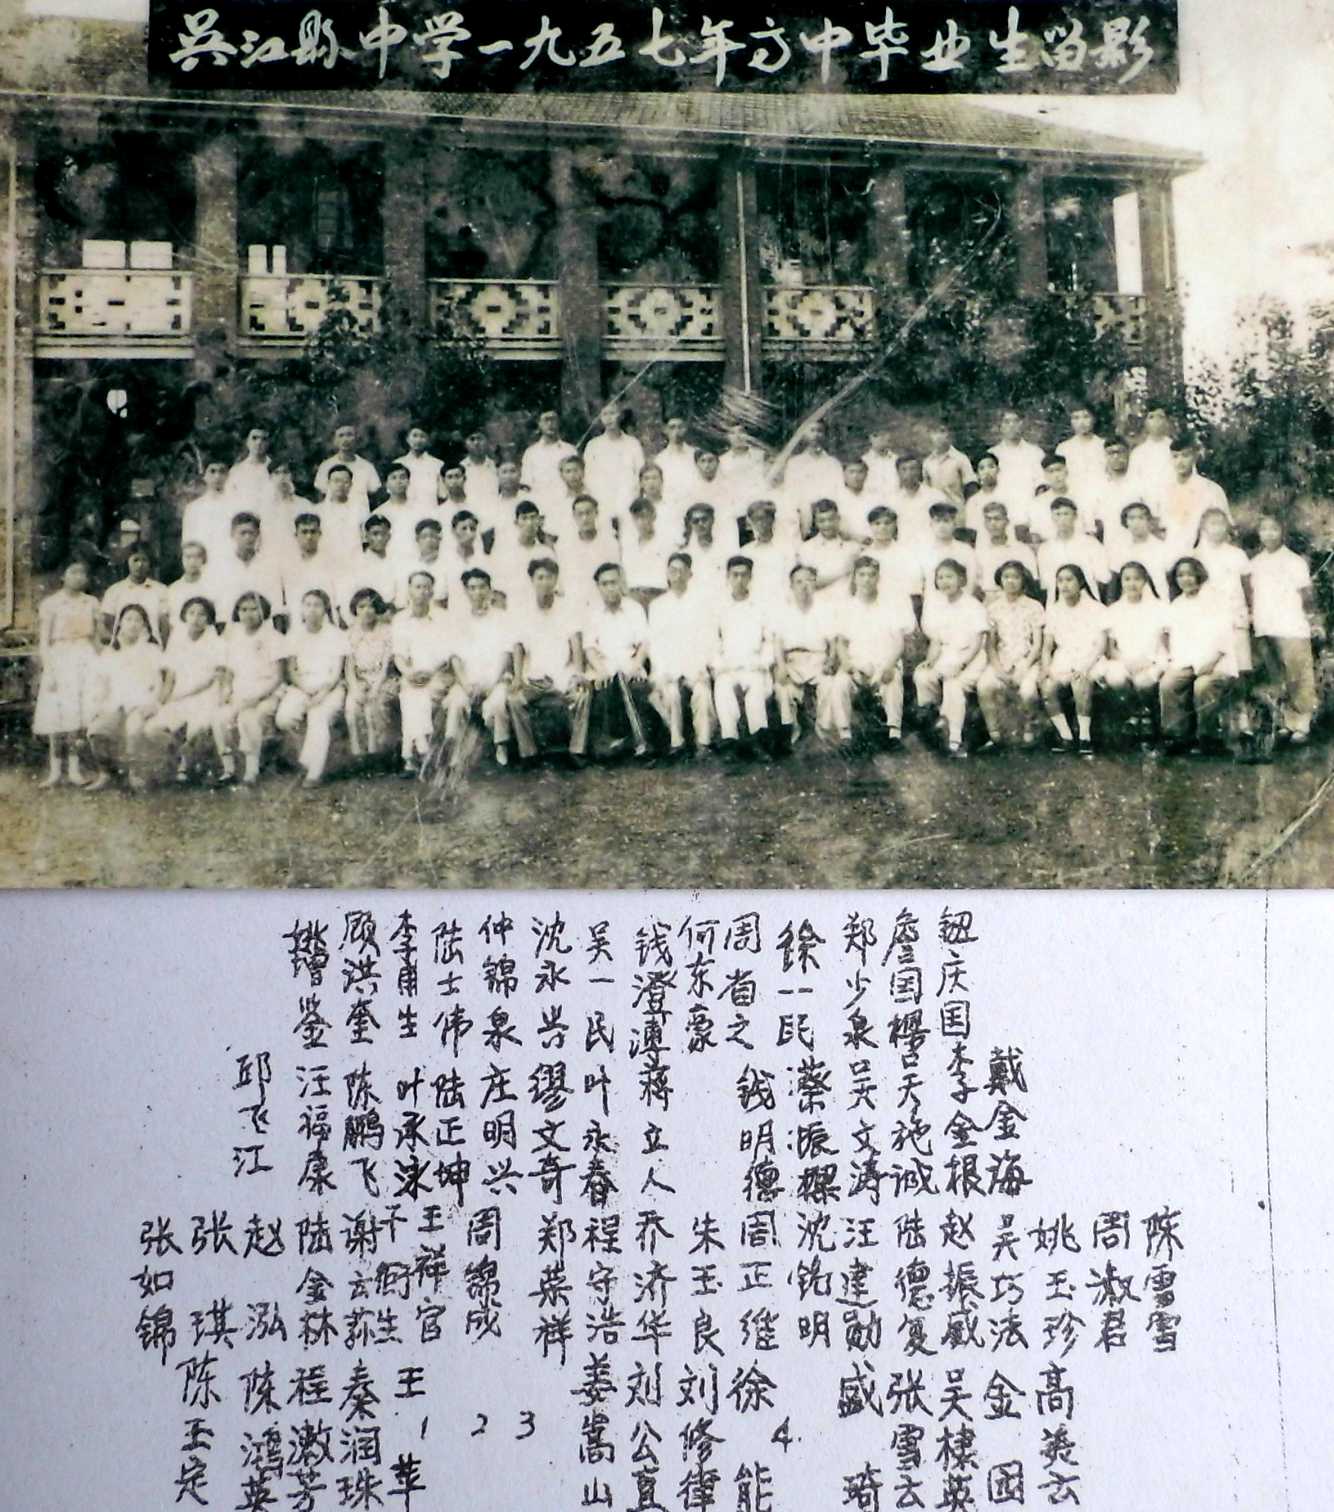 吴江縣中学一九五七年高中毕业生留影
姚增鋆 顾洪奎 李甫生 陆士伟 仲锦泉 沈永兴 吴一民 钱澄溥 何东豪 周省之 徐一民 郑少泉 詹国樱 钮庆国
邱飞江 汪福康 陈鹏飞 叶承泳 陆正坤 庄明兴 缪文奇 叶永春 蒋立人 钱明德 蔡振 吴文涛 施诚 李金根 戴金海
张如锦 张琪 赵泓 陆金林 谢云荪 生 王祥官 周锦成 郑荣祥 程守浩 乔济华 朱玉良 周正维 沈铭明 汪建勋 陆德复 赵振威 吴巧法 姚玉珍 周淑君 陈雪雪
陈玉定 陈鸿英 程漱芳 秦润珠 王苹 1 2 3 姜嵩山 刘公直 刘修律 徐能 4 盛琦 张雪云 吴棣英 金园 高美云